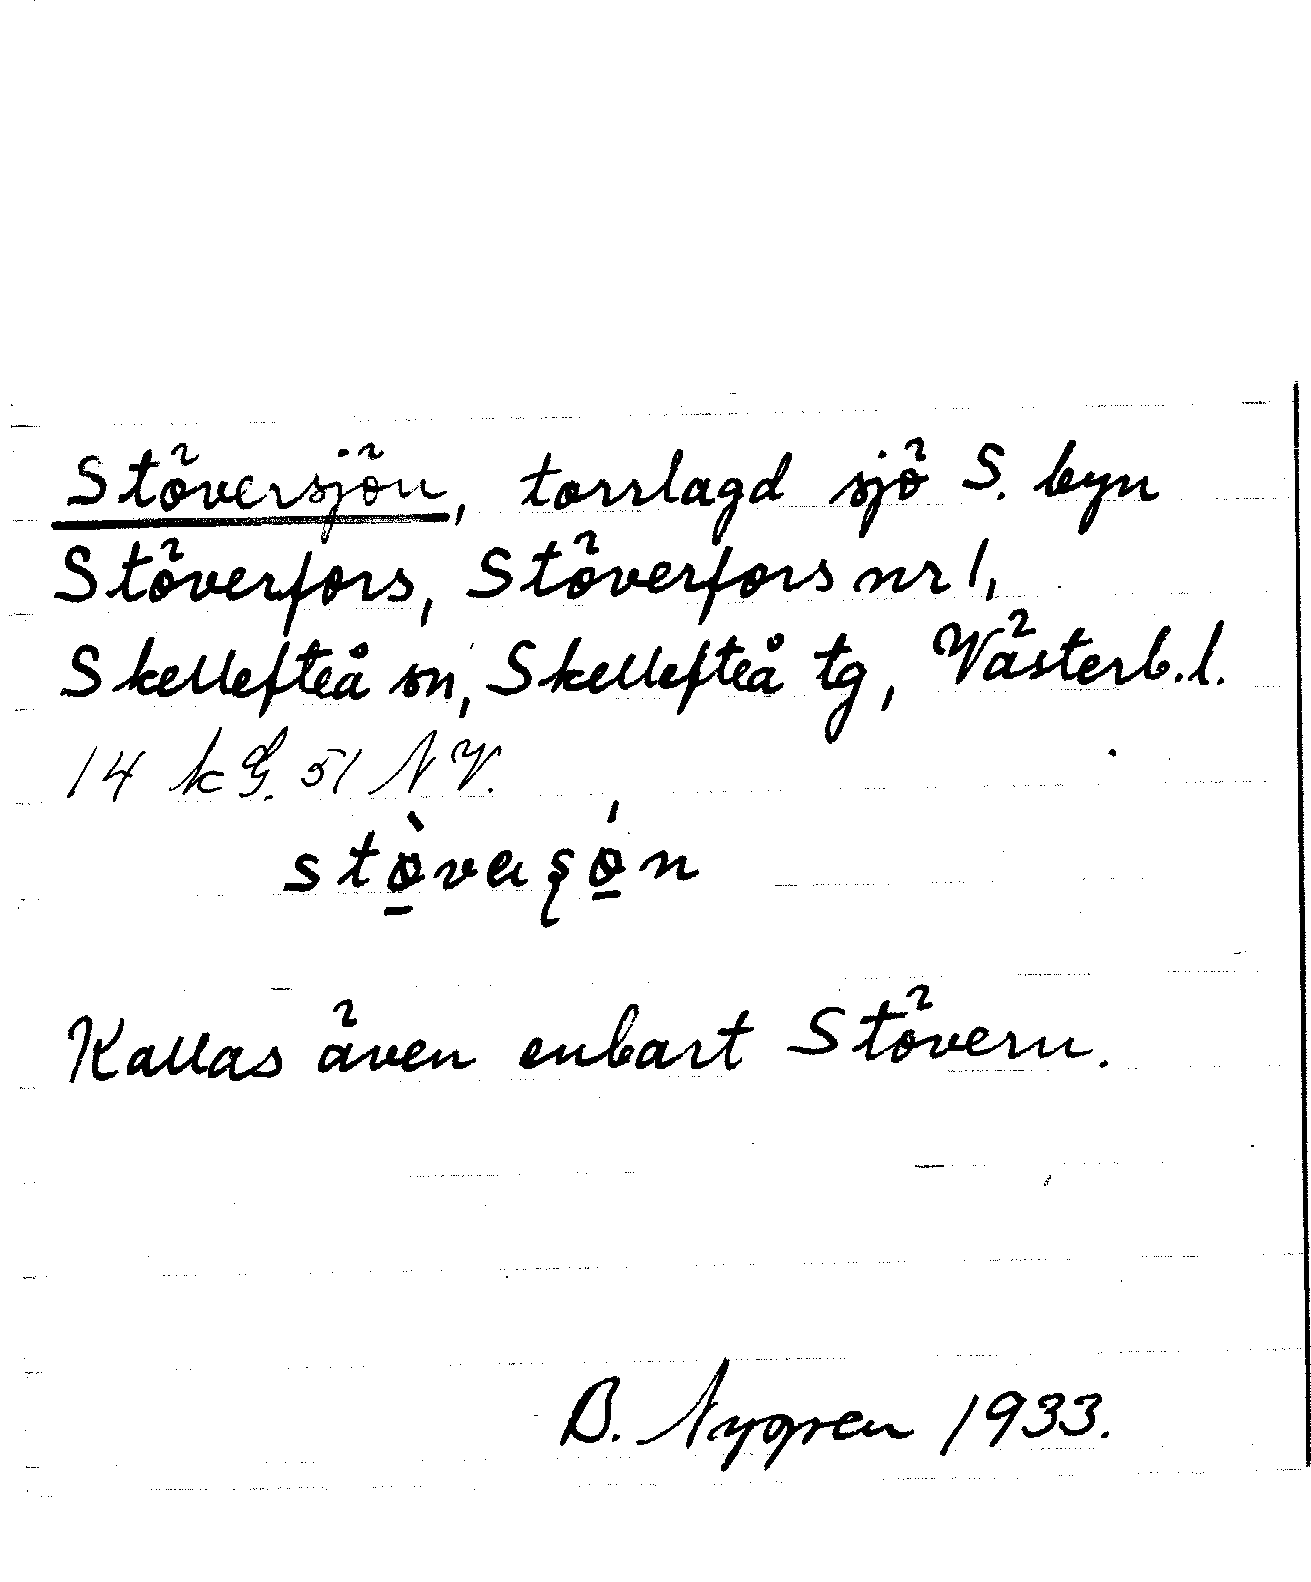 Stöversjön, torrlagd sjö S. byn
Stöverfors, Stöverfors nr 1,
Skellefteå sn, Skellefteå tg, Västerb.l.
14 k G. 51 N V.
Kallas även enbart Stövern.
B. Nygren 1933.